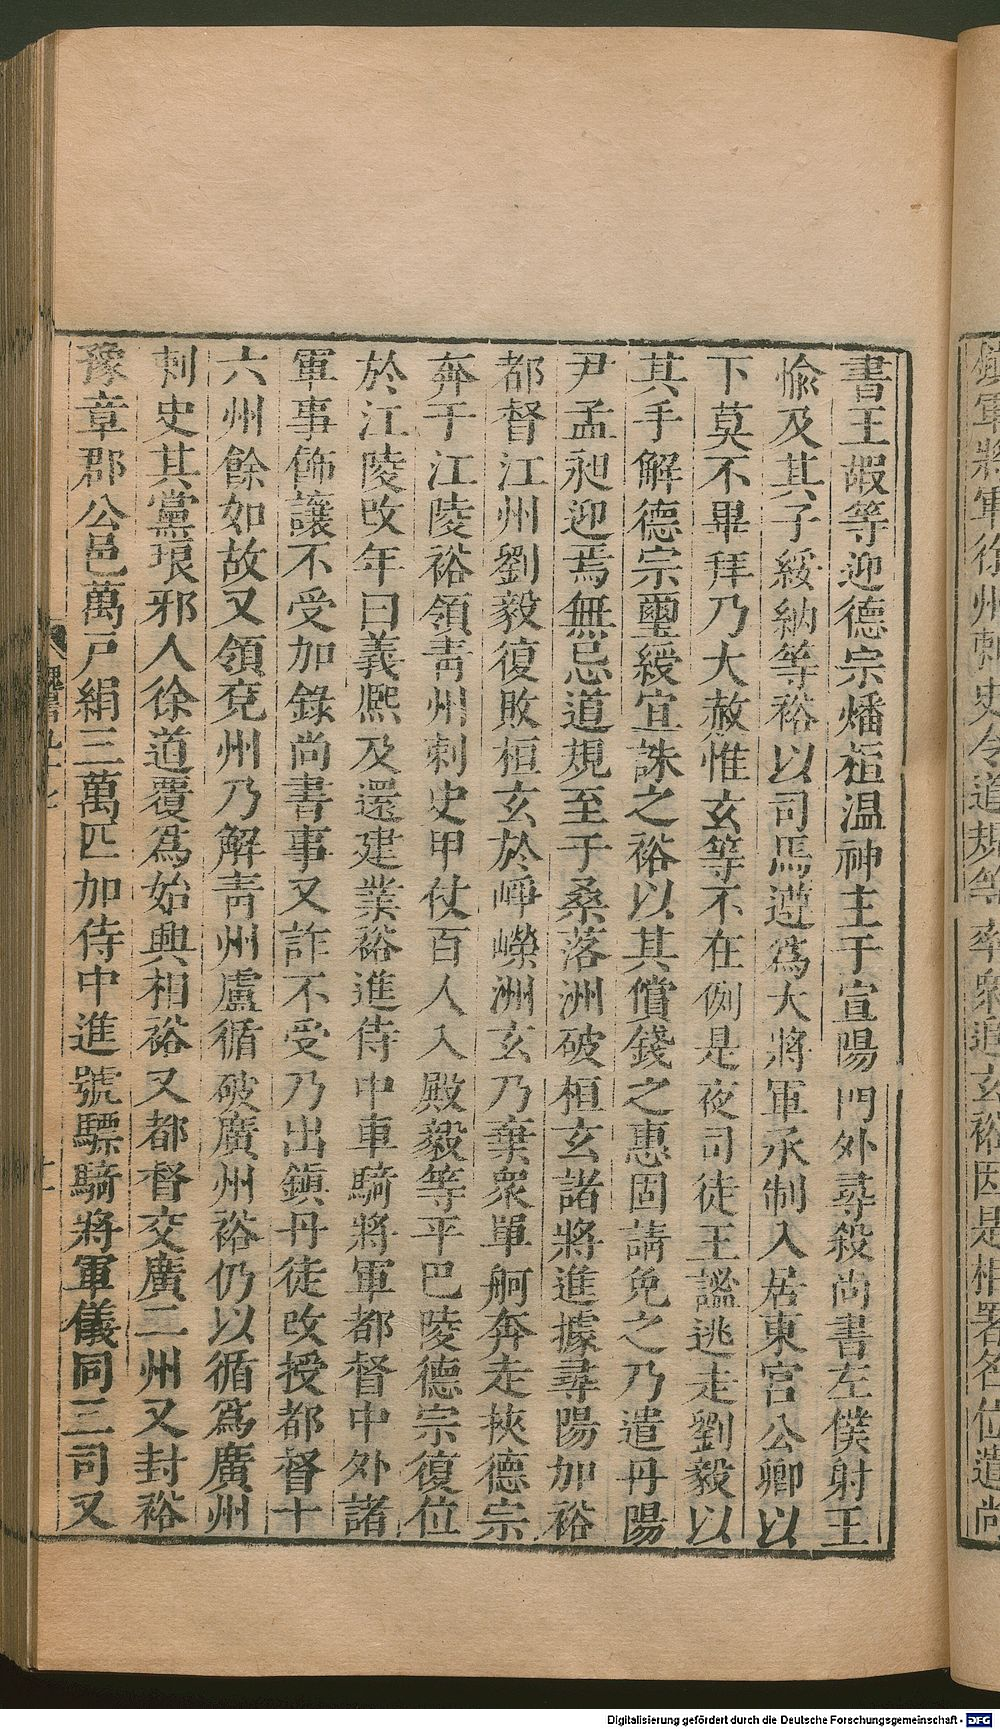 書王嘏等迎德宗燔桓温神主于宣陽門外尋殺尚書左僕射王
愉及其子綏納等裕以司馬遵爲大將軍承制入居東宮公卿以
下莫不畢拜乃大赦惟玄等不在例是夜司徒王謐逃走劉毅以
其手解德宗璽綬宜誅之裕以其償錢之惠固請免之乃遣丹陽
尹孟昶迎焉無忌道規至于桑落洲破桓玄諸將進據尋陽加裕
都督江州劉毅復敗桓玄於崢嶸洲玄乃棄衆單舸奔走挾德宗
奔于江陵裕領青州刺史甲仗百人入殿毅等平巴陵德宗復位
於江陵改年曰義熙及還建業裕進侍中車騎將軍都督中外諸
軍事飾讓不受加錄尚書事又詐不受乃出鎮丹徒改授都督十
六州餘如故又領兗州乃解青州盧循破廣州裕仍以循爲廣州
刺史其黨琅邪人徐道覆爲始興相裕又都督交廣二州又封裕
豫章郡公邑萬戶絹三萬匹加侍中進號驃騎將軍儀同三司又
魏書九十七
十一
鎮軍將軍徐州刺史令道規等率衆追玄裕因是相署名位遣尚
Digitalisierung gefördert durch die Deutsche Forschungsgemeinschaft - DFG